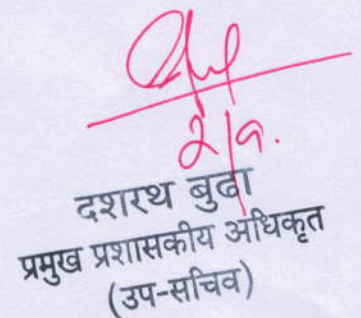 २/१.
दशरथ बुढा
प्रमुख प्रशासकीय अधिकृत
(उप-सचिव)